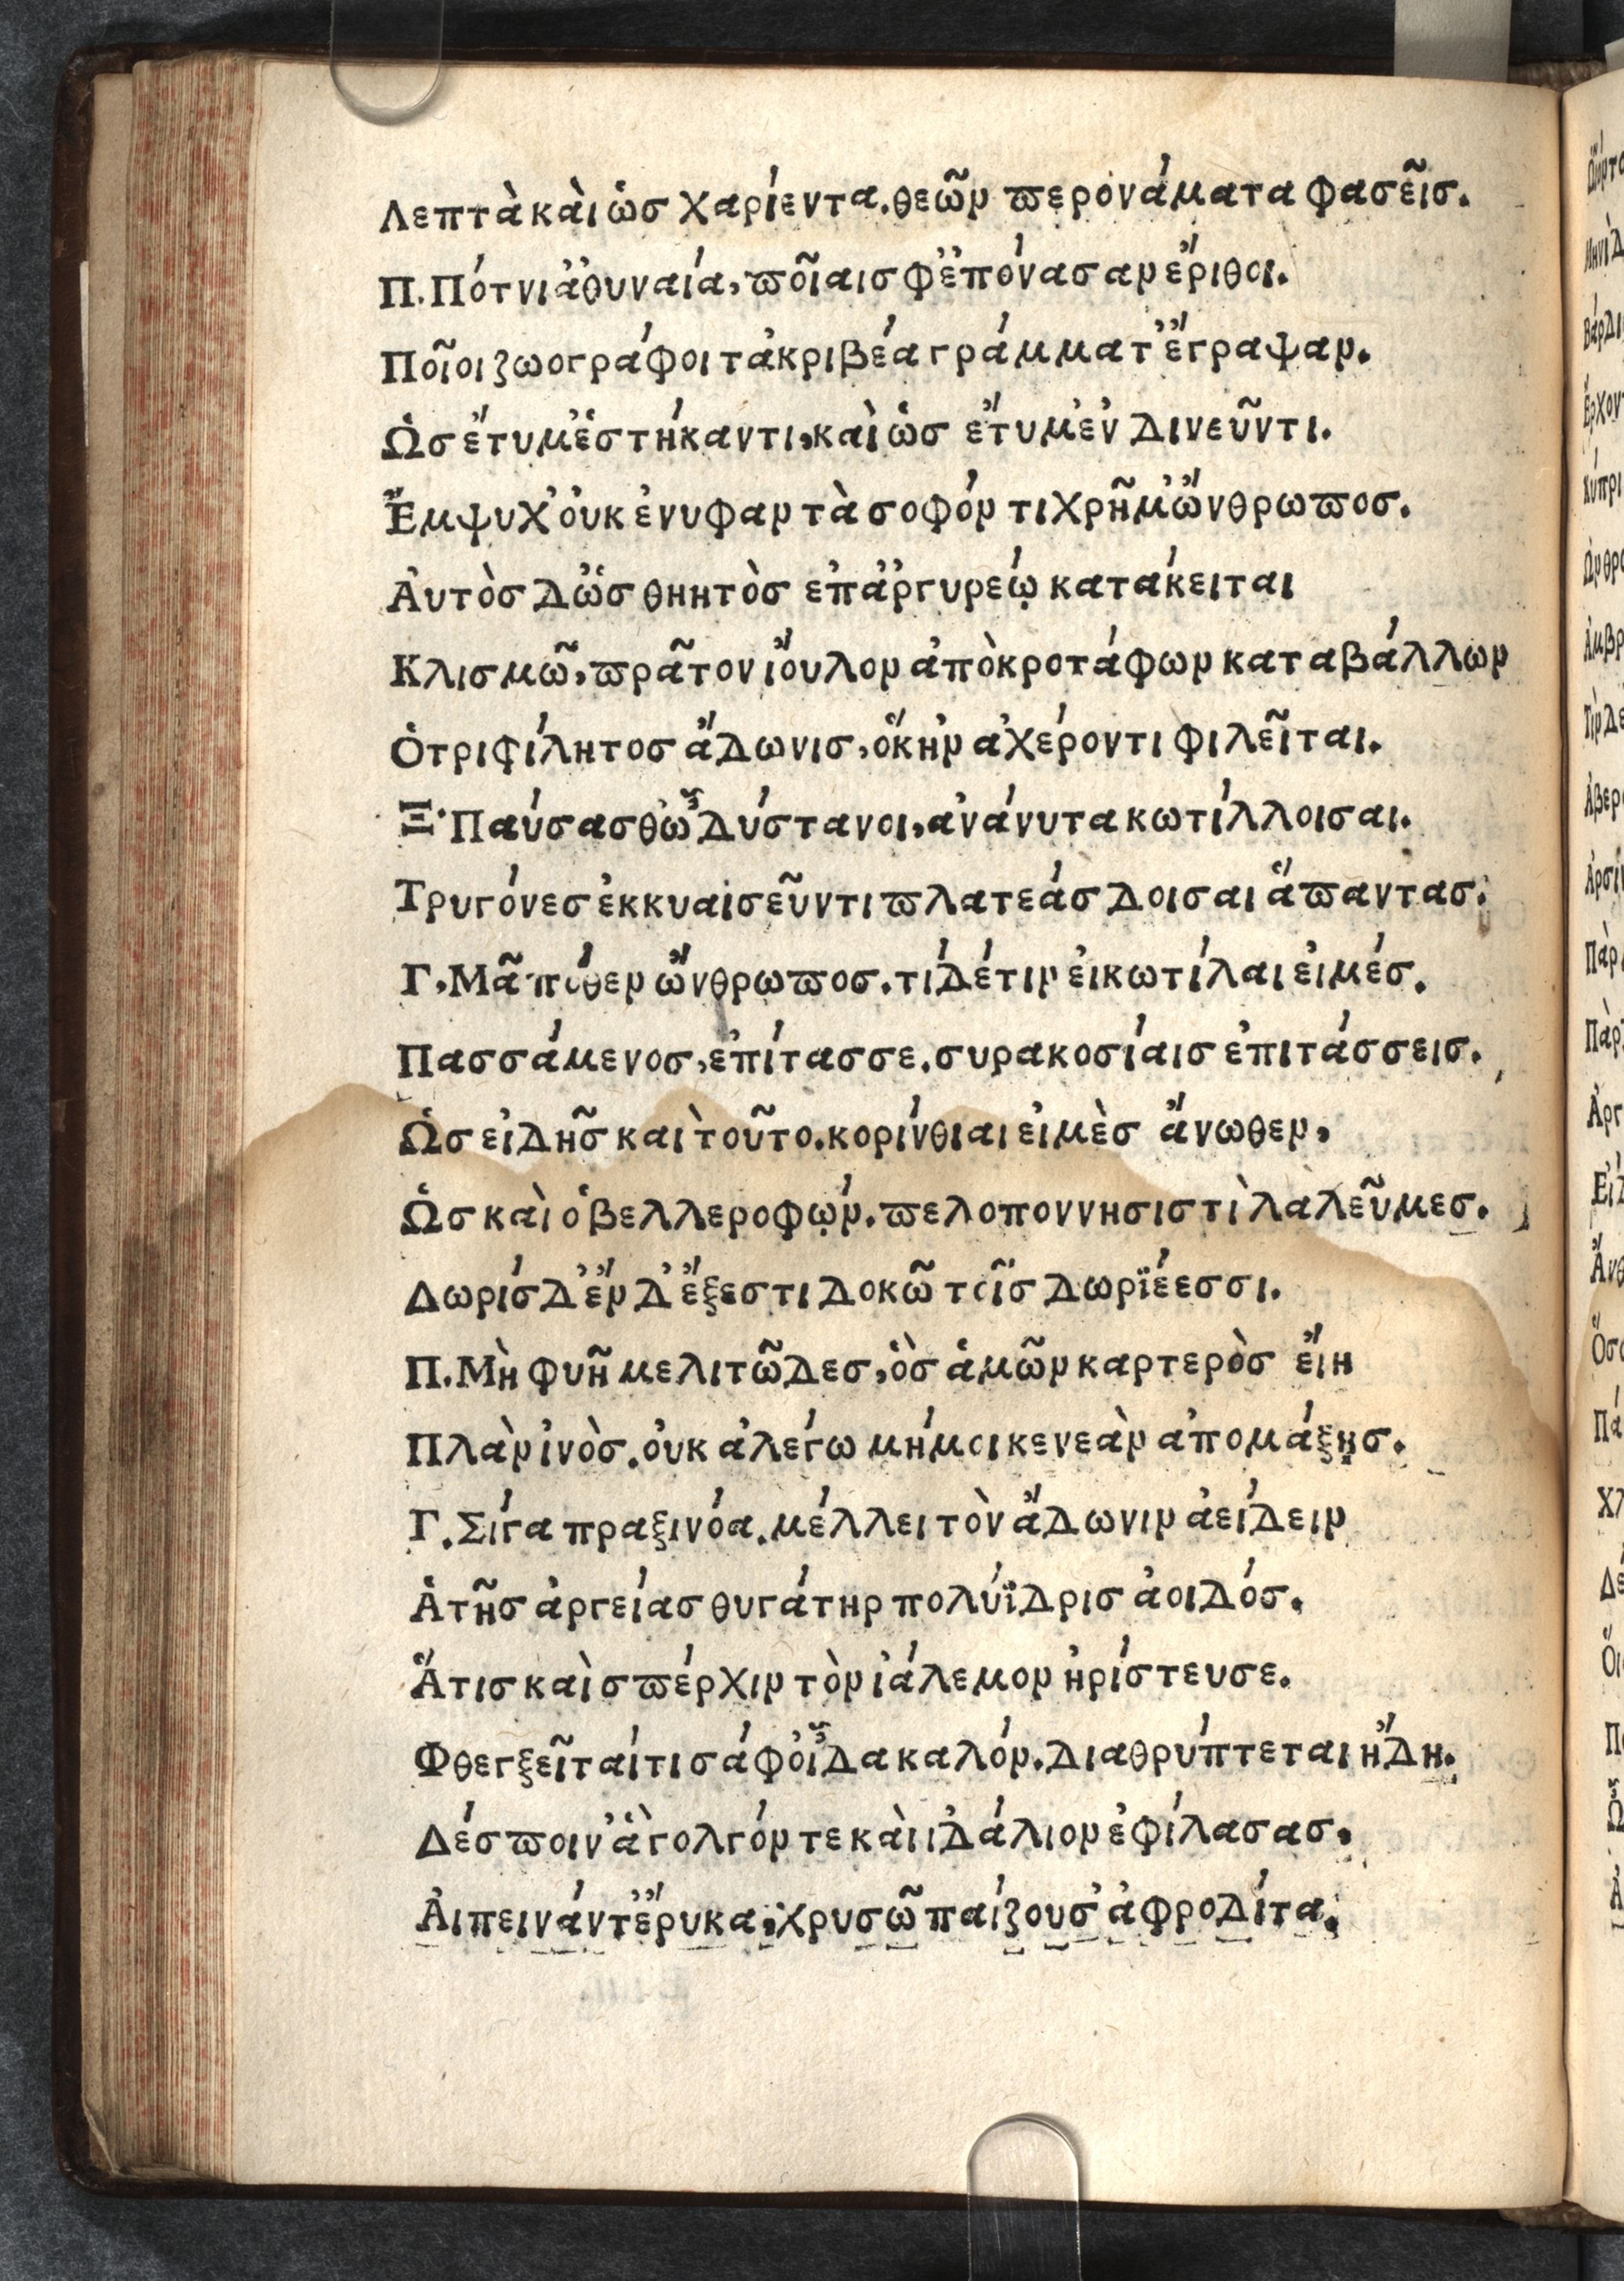 Λεπτὰ κὰι ὡσ χαρίεντα. θεῶν περονάματα φασεῖισ.
Π. Πότνι ἀθυναία, ποῖαισ φ' ἐπόνασαν ἔριθοι.
Ποῖοι ζωογράφοι τ' ἀκριβέα γράμματ' ἔγραψαν.
Ὡσ ἔτυμ' ἑστήκαντι, καὶ ὡσ ἔτυμ' ἐν δινεῦντι.
Ἔμψυχ' ὀυκ ἐνυφαν τὰ σοφόν τι χρῆμ' ὤνθρωποσ.
Ἀυτὸσ δ' ὡσ θηητὸσ ἐπ' ἀργυρεῴ κατακειται
Κλισμῶ, πρᾶτον ἴουλον ἀπὸ κροτάφων καταβάλλων
Ὁ τριφίλητοσ ἄδωνισ, ὅ κὴν ἀχέροντι φιλεῖται.
Ξ. Παύσασθ' ὦ δύστανοι, ἀνάνυτα κωτίλλοισαι.
Τρυγόνεσ ἐκκυαισεῦντι πλατεάσδοισαι ἅπαντασ.
Γ, Μᾶ πόθεν ὤνθρωποσ. τί δέ τιν ἐι κωτίλαι ἐιμέσ.
Πασσάμενοσ, ἐπίτασσε. συρακοσίαισ ἐπιτάσσεισ.
Ὡσ εἰδῆσ καὶ τοῦτο. κορίνθιαι εἰμὲσ ἄνωθεν,
Ὡσ καὶ ὁ βελλεροφῳν. πελοποννησιστὶ λαλεῦμεσ.
Δωρίσδ' ἐν δ' ἔξεστι δοκῶ τοῖσ δωριέεσσι.
Π. Μὴ φυῆ μελιτῶδεσ, ὃσ ἁμῶν καρτερὸσ ἔιη
Πλὰν ἑνὸσ. ὀυκ ἀλέγω μή μοι κενεὰν ἀπομάξῃσ.
Γ. Σίγα πραξινόα. μέλλει τὸν ἄδωνιν ἀείδειν
Ἁ τῆσ ἀργείασ θυγάτηρ πολύϊδρισ ἀοιδόσ.
Ἅτισ καὶ σπέρχιν τὸν ἰάλεμον ἠρίστευσε.
Φθεγξεῖται τι σάφ' οἶδα καλόν. διαθρύπτεται ἤδη.
Δέσποιν' ἃ γολγόν τε κὰι ἰδάλιον ἐφίλασασ.
Ἀιπεινάν τ' ἔρυκα, χρυσῶ παίζουσ' ἀφροδίτα.